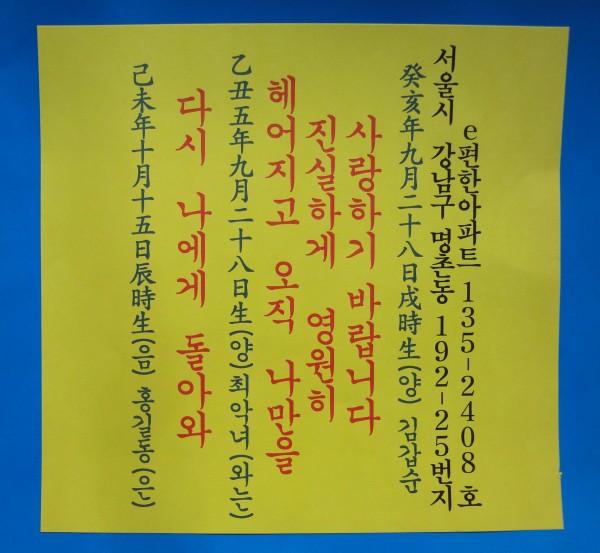 己未年十月十五日辰時生(음) 홍길동(은)
다시 나에게 돌아와
乙丑五年九月二十八日生(양)최악녀(와는)
헤어지고 오직 나만을
진실하게 영원히
사랑하기 바랍니다
癸亥年九月二十八日戌時生(양) 김갑순
서울시 강남구 명촌동 192-25번지
e편한아파트 135-2408 호